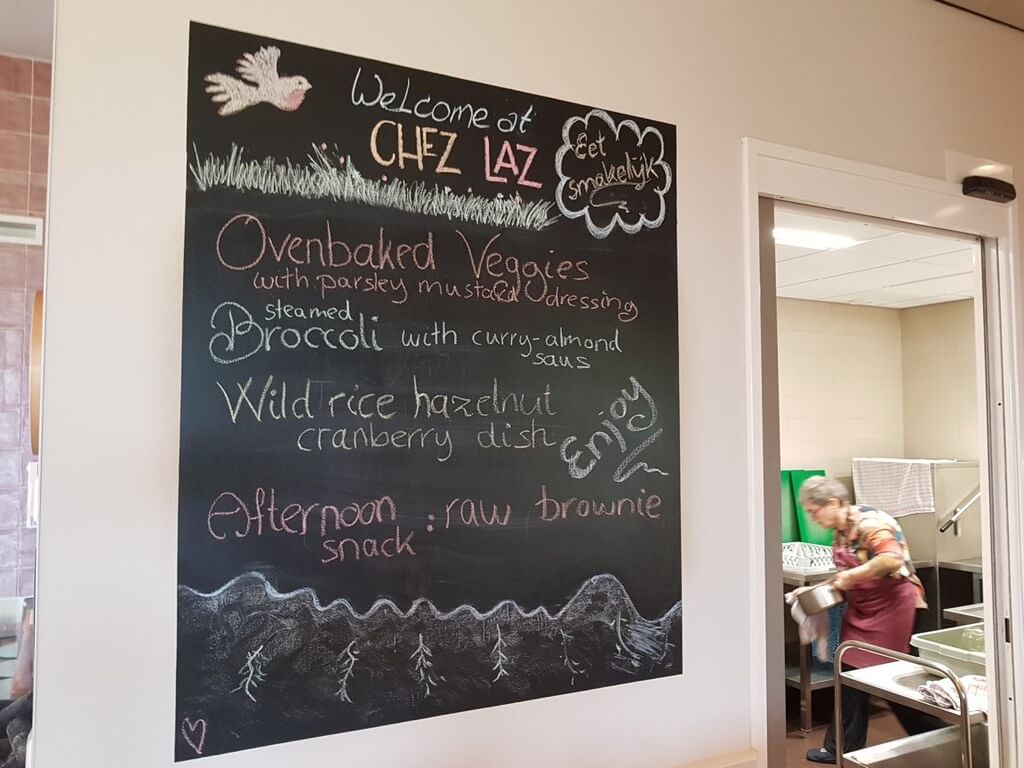 Welcome at
CHEZ LAZ
Eet
smakelijk
Ovenbaked Veggies
with parsley mustard dressing
steamed
Broccoli with curry-almond
saus
Wild rice hazelnut
cranberry dish
Enjoy
Afternoon : raw brownie
snack